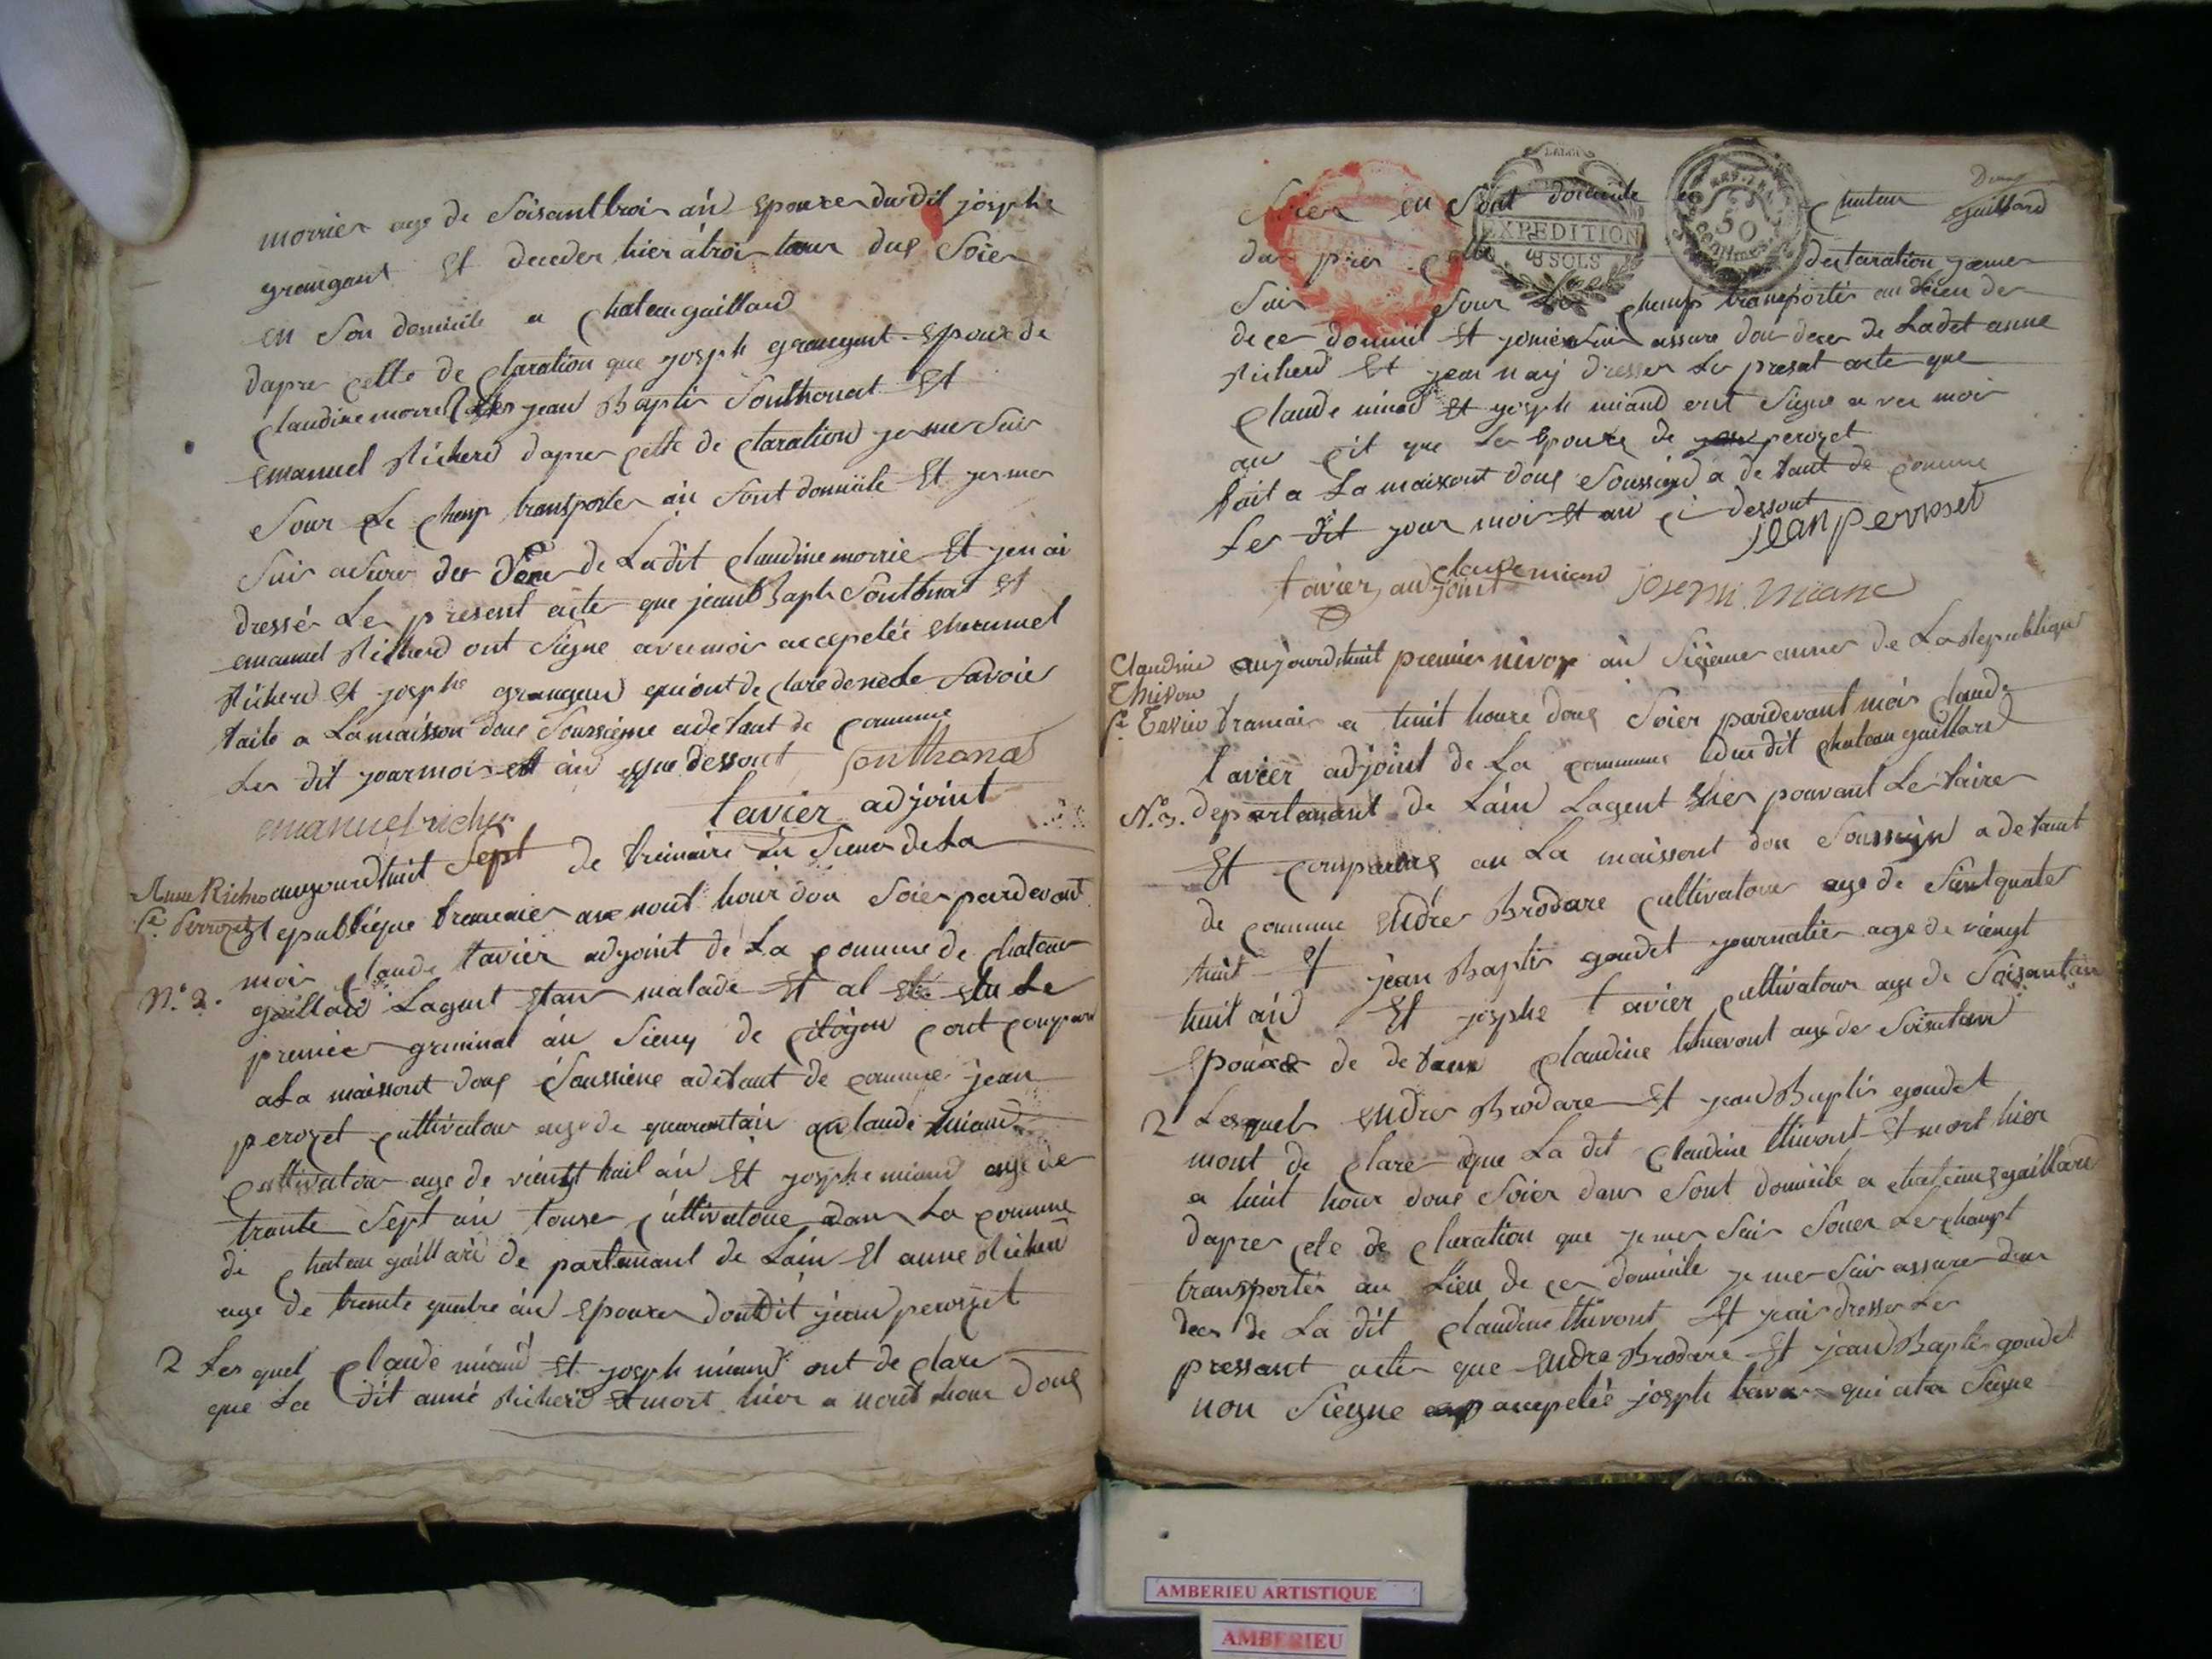 morrier age de Soisanttrois án Epouxe du dit josphe
grangant Et deceder hier á troi heur duę Soier
en Son domicile a chateaugaillard
dapre cette de claration que josph grangant Epoux de
claudine morrel jean Baptis Sonthonat Et
emanuel Richerd dapres cette de claration je me Suis
Sour Le champ transporter án Sont domicile Et je me
Suis asure de de Ladit claudine morrie Et jen ai
dressér Le present acte que jean Bapts Sontonat Et
emanuel Richerd ont Signe avec moi accepelée Emanuel
Richerd Et josphe grangand qui ont de clare de ne de Savoir
faite a Lamaisson douę Soussigne a de faut de commune
Les dit jour mois Et án que dessout Sonthonas
emanuel richer tavier adjoint
Anne Richer aujourdhuit Sept de frimaire án Sieme de La
fe Perrozet Republique francaise a nout hour dou Soier pardevant
moi claude tavier adjoint de La commune de chateau
N.º 2. gaillard Lagent Etan malade Et al Elu Le
premier germinal án Siemę de citoyen cont compare
a La maissont douę Soussiene a de faut de commune jean
perozet cultivatour age de quarantáin claude miand
cultivatour age de vieingt huit án Et josphe miand age de
trante Sept án touser cultivatoue dans La commune
de chateau gaillard de partemant de Láin Et anne Richerd
age de trente quatre án Epouxe doudit jean perozet
2 Les quel claude miand Et josph miand ont de clare
que La dit anne Richerd Et mort hier a nout hour douę
Soier en Sont domicile a chateau gaillard
da pres cette declaration jeme
Suis Sour Le champ transportér au Lieu de
de ce domicil Et jeme Suis assure dou deces de Ladet anne
Richerd Et jean nay dresser Le presat acte que
claude miad Et josph miand ont Signe avec moi
au cit que Les Epouxe de perozet
fait a La maisont douę Soussigne a de faut de commune
Les dit jour mois Et an ci dessout jean perroset
tavier adjoint claude miand joseph miand
Claudine aujourdhuit premier nivoze án Siegeme anner de La Republique
Thivon
fe Tavier francais a huit houre douę Soier pardevant moi claude
tavier adjoint de La commune dudit chateau gaillard
N.º 3. departemant de Láin Lagent pouvant Le faire
Et comparue an La maissont dou Soussign a de faut
de commune Endre Brodare cultivatour age de Sinlquater
huit Et jean Baptis goudet journalier age de vieingt
huit án Et josphe tavier cultivatour age de Soisantan
Epouxe de de faux claudine thivont age de Soisantan
2 Lesquels Endre Brodare Et jean Baptis goudet
mont de clare que La dit claudine thivont Et mort hier
a huit hour douę Soier dans Sont domicile a chateau gaillard
dapres cete de claration que je me Suis Souer Le champt
transportér au Lieu de ce domicile je me Suis assurer dou
dece de La dit claudine thivont Et jeais dresser Le
pressant acte que Endre Brodare Et jean Baptis goudet
non Siegne accepelée josph tavier qui ata Signe
EXPEDITION
8 SOLS
50
AMBERIEU ARTISTIQUE
AMBERIEU